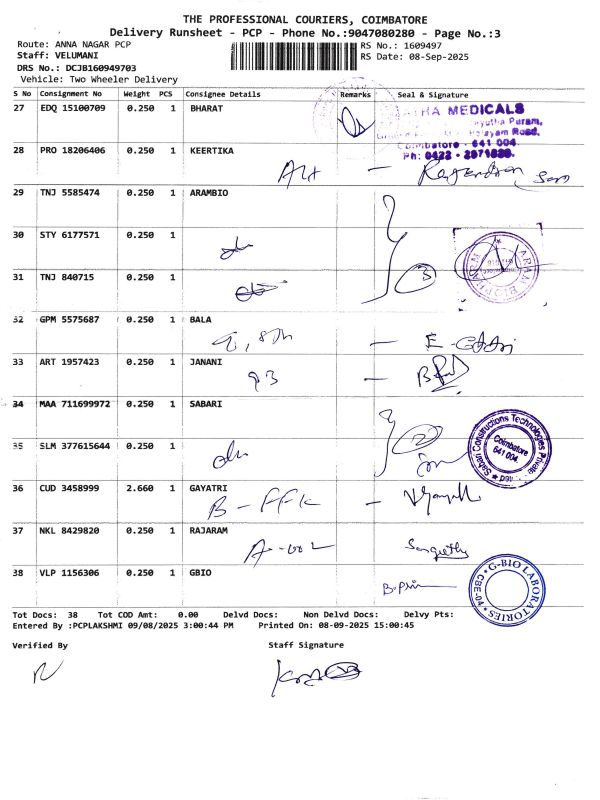 THE PROFESSIONAL COURIERS, COIMBATORE
Delivery Runsheet - PCP - Phone No.:9047080280 - Page No.:3
Route: ANNA NAGAR PCP
RS No.: 1609497
Staff: VELUMANI
RS Date: 08-Sep-2025
DRS No.: DCJB160949703
Vehicle: Two Wheeler Delivery
S No Consignment No Weight PCS Consignee Details Remarks Seal & Signature
27 EDQ 15100709 0.250 1 BHARAT
MEDICALS
Puram,
Road.
Coimbatore - 641 004.
28 PRO 18206406 0.250 1 KEERTIKA
29 TNJ 5585474 0.250 1 ARAMBIO
30 STY 6177571 0.250 1
3
ARAM BIOPHARM
31 TNJ 840715 0.250 1
32 GPM 5575687 0.250 1 BALA
33 ART 1957423 0.250 1 JANANI
93
34 MAA 711699972 0.250 1 SABARI
2
Sabari Constructions Technologies Private
Coimbatore
641 004.
35 SLM 377615644 0.250 1
36 CUD 3458999 2.660 1 GAYATRI
37 NKL 8429820 0.250 1 RAJARAM
Sangeetha
38 VLP 1156306 0.250 1 GBIO
G-BIO LABORATORIES
CBE-04
Tot Docs: 38 Tot COD Amt: 0.00 Delvd Docs: Non Delvd Docs: Delvy Pts:
Entered By :PCPLAKSHMI 09/08/2025 3:00:44 PM Printed On: 08-09-2025 15:00:45
Verified By Staff Signature